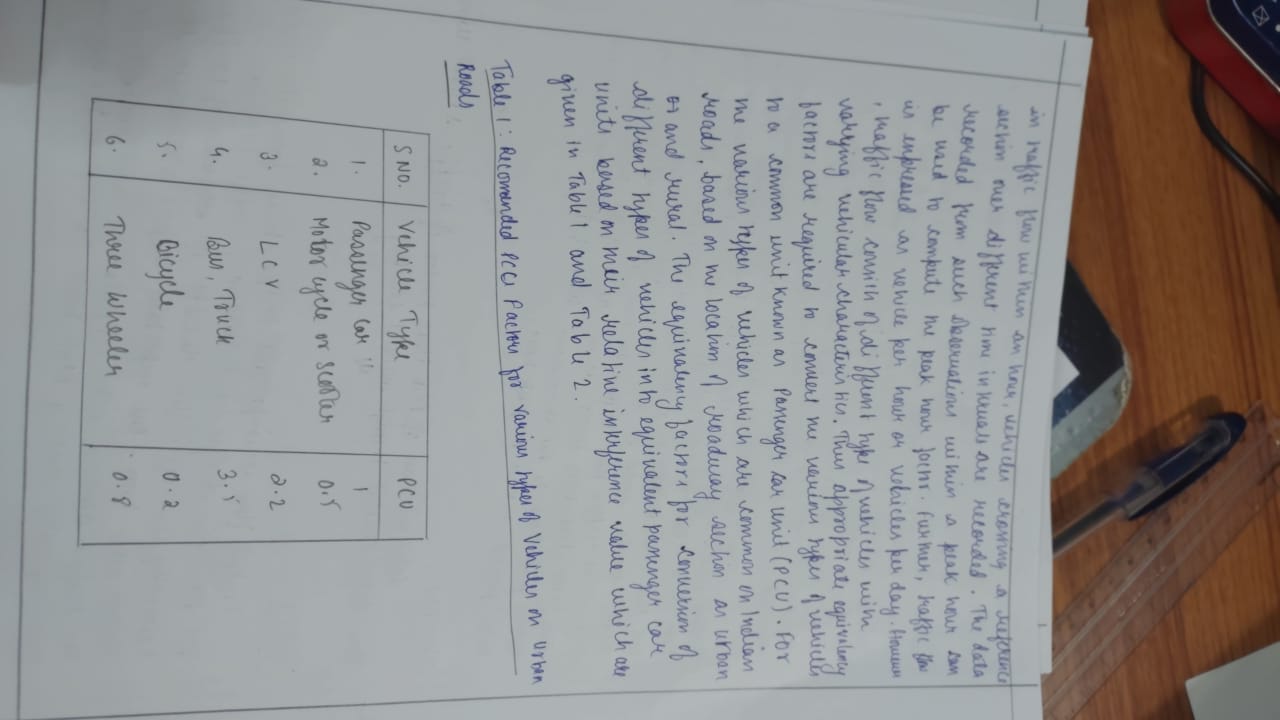 in traffic flow within an hour, vehicles crossing a reference
section over different time intervals are recorded. The data
recorded from such observations within a peak hour can
be used to compute the peak hour factor. Further, traffic flow
is expressed as vehicle per hour or vehicles per day. However
, traffic flow consith of different type of vehicles with
varying vehicular characteristics. Thus appropriate equivalency
factors are required to convert the various types of vehicles
to a common unit known as Passenger car unit (PCU). For
the various types of vehicles which are common on Indian
roads, based on the location of roadway section as urban
or and rural. The equivalency factors for conversion of
different types of vehicles into equivalent passenger car
units based on their relative interference value which are
given in Table 1 and Table 2.
Table 1: Recomended PCU Factors for various types of Vehicles on Urban
Roads
S NO. Vehicle Type PCU
1. Passenger Car 1
2. Motor cycle or scooter 0.5
3. LCV 2.2
4. Bus, Truck 3.5
5. Bicycle 0.2
6. Three Wheeler 0.8